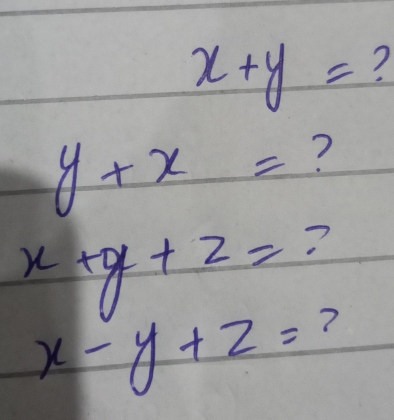 x + y = ?
y + x = ?
x + y + z = ?
x - y + z = ?